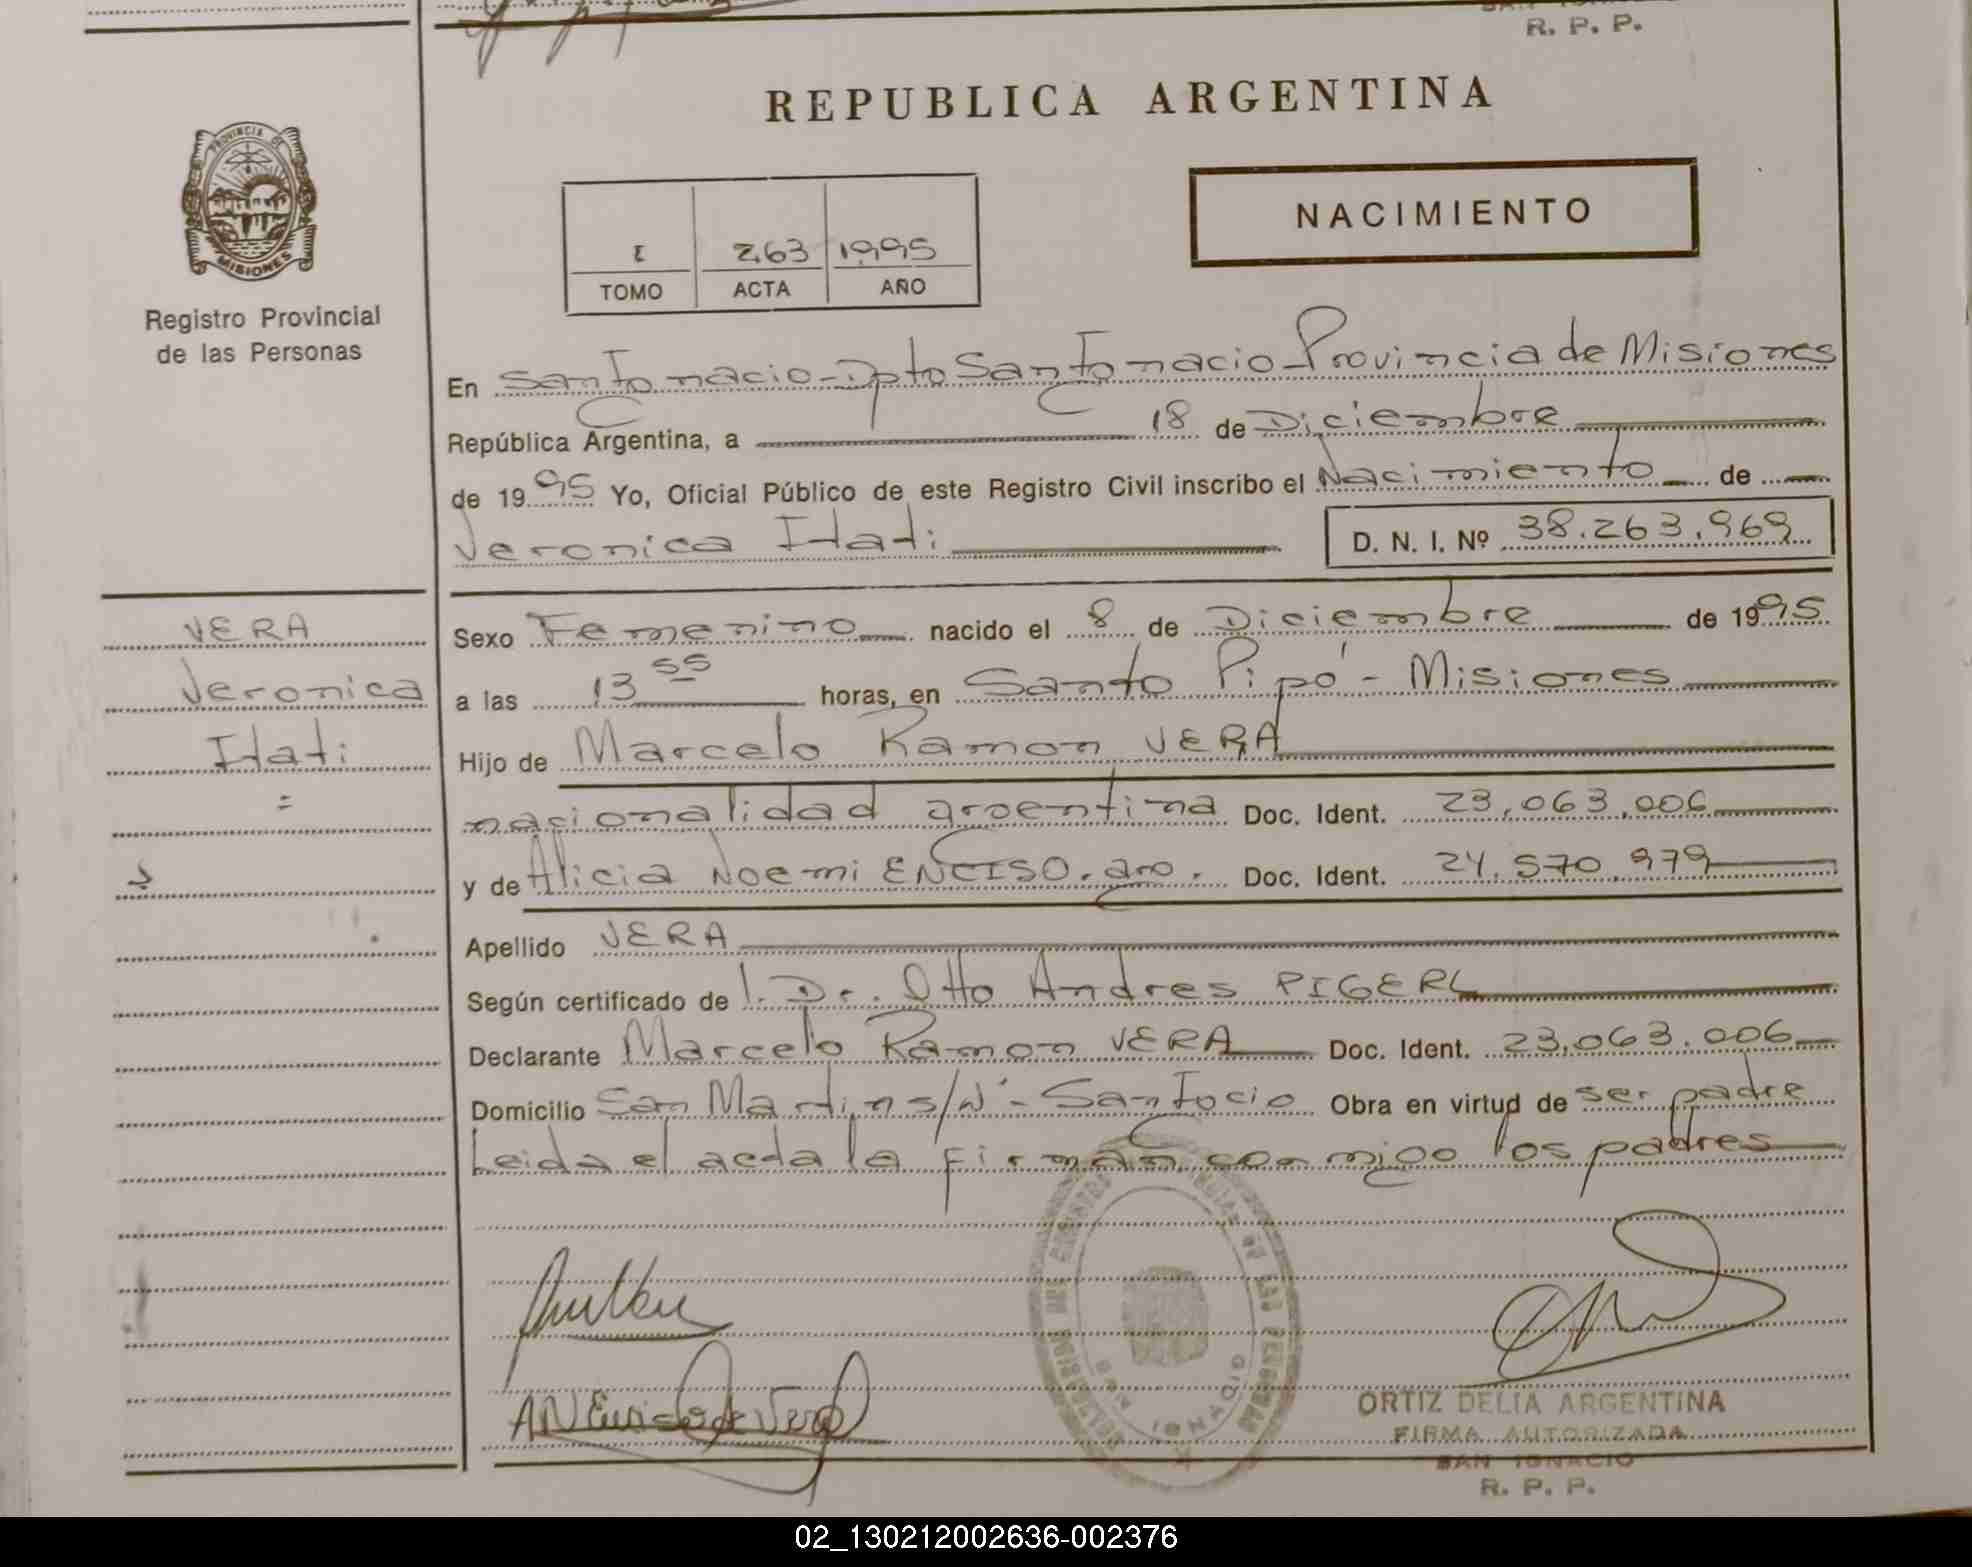 R. P. P.
REPUBLICA ARGENTINA
PROVINCIA DE
MISIONES
Registro Provincial
de las Personas
I 263 1995
TOMO ACTA AÑO
NACIMIENTO
En San Ignacio - Dpto San Ignacio - Provincia de Misiones
República Argentina, a 18 de Diciembre
de 1995 Yo, Oficial Público de este Registro Civil inscribo el Nacimiento de
Veronica Itati D. N. I. Nº 38.263.969
VERA
Veronica
Itati
=
Sexo Femenino nacido el 8 de Diciembre de 1995
a las 13 55 horas, en Santo Pipó - Misiones
Hijo de Marcelo Ramon VERA
nacionalidad argentina Doc. Ident. 23.063.006
y de Alicia Noemi ENCISO. arg. Doc. Ident. 24.570.979
Apellido VERA
Según certificado de l. Dr. Otto Andres PIGERL
Declarante Marcelo Ramon VERA Doc. Ident. 23.063.006
Domicilio San Martin s/Nº - San Igcio Obra en virtud de ser padre
Leida el acta la firman conmigo los padres
ORTIZ DELIA ARGENTINA
FIRMA AUTORIZADA
SAN IGNACIO
R. P. P.
02_130212002636-002376